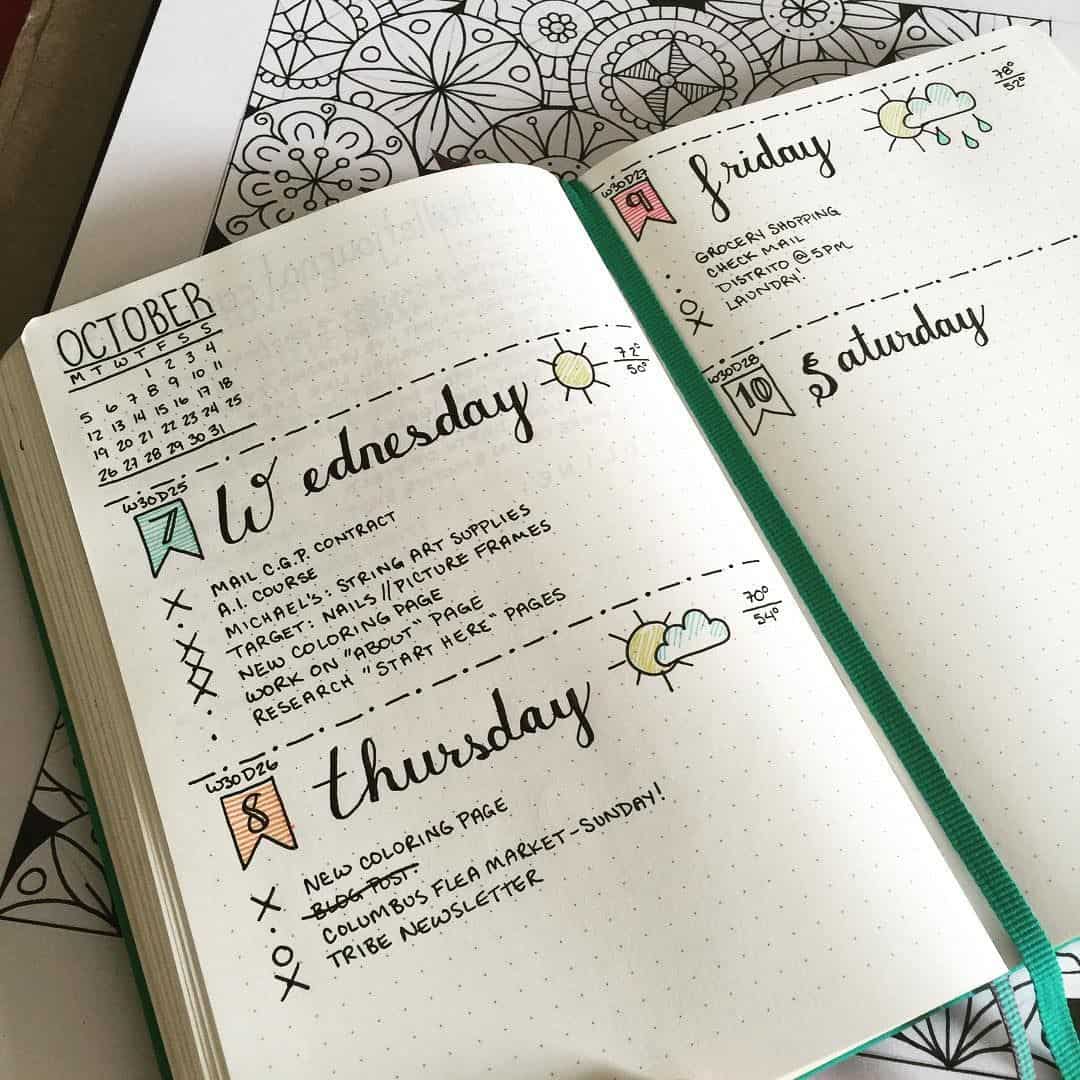 OCTOBER
M T W T F S S
1 2 3 4
5 6 7 8 9 10 11
12 13 14 15 16 17 18
19 20 21 22 23 24 25
26 27 28 29 30 31
W30D25
7
Wednesday
72°
50°
MAIL C.G.P. CONTRACT
A.I. COURSE
MICHAEL'S: STRING ART SUPPLIES
TARGET: NAILS // PICTURE FRAMES
NEW COLORING PAGE
WORK ON "ABOUT" PAGE
RESEARCH "START HERE" PAGES
W30D26
8
thursday
70°
54°
NEW COLORING PAGE
BLOG POST.
COLUMBUS FLEA MARKET-SUNDAY!
TRIBE NEWSLETTER
W30D27
9
friday
78°
52°
GROCERY SHOPPING
CHECK MAIL
DISTRITO @ 5PM
LAUNDRY!
W30D28
10
Saturday